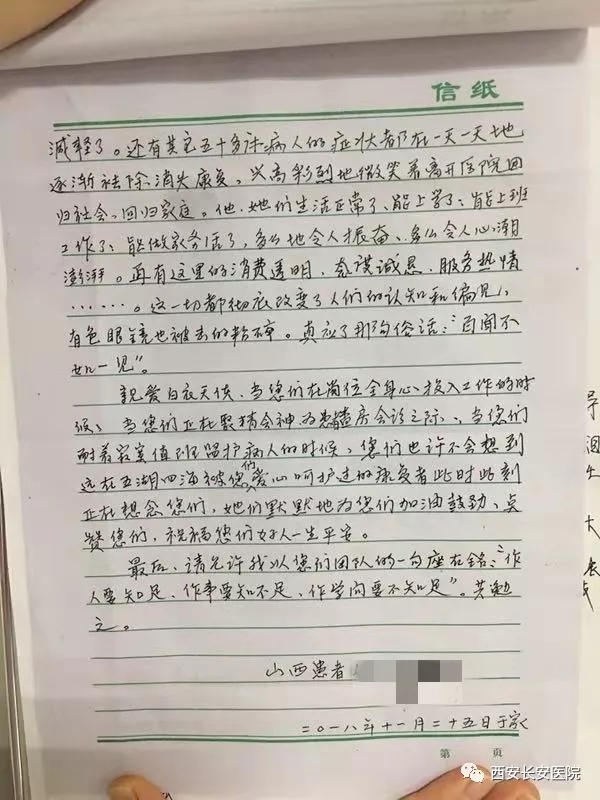 信纸
减轻了。还有其它五十多床病人的症状都在一天一天地
逐渐祛除、消失康复、兴高彩烈地微笑着离开医院回
归社会、回归家庭。他、她们生活正常了、能上学了、能上班
工作了、能做家务活了，多么地令人振奋、多么令人心潮
澎湃。再有这里的消费透明、态度诚恳、服务热情
……。这一切都彻底改变了人们的认知和偏见，
有色眼镜也被击的粉碎。真应了那句俗话：“百闻不
如一见”。
亲爱白衣天使、当您们在岗位全身心投入工作的时
候、当您们正在聚精会神为患者会诊之际、当您们
耐着寂寞值班留护病人的时候、您们也许不会想到
远在五湖四海被您们爱心呵护过的康复者此时此刻
正在想念您们，她们默默地为您们加油鼓劲、点
赞您们，祝福您们好人一生平安。
最后、请允许我以您们团队的一句座右铭：“作
人要知足、作事要知不足、作学问要不知足”。共勉
之。
山西患者
二〇一八年十一月二十五日于家
第 页
西安长安医院